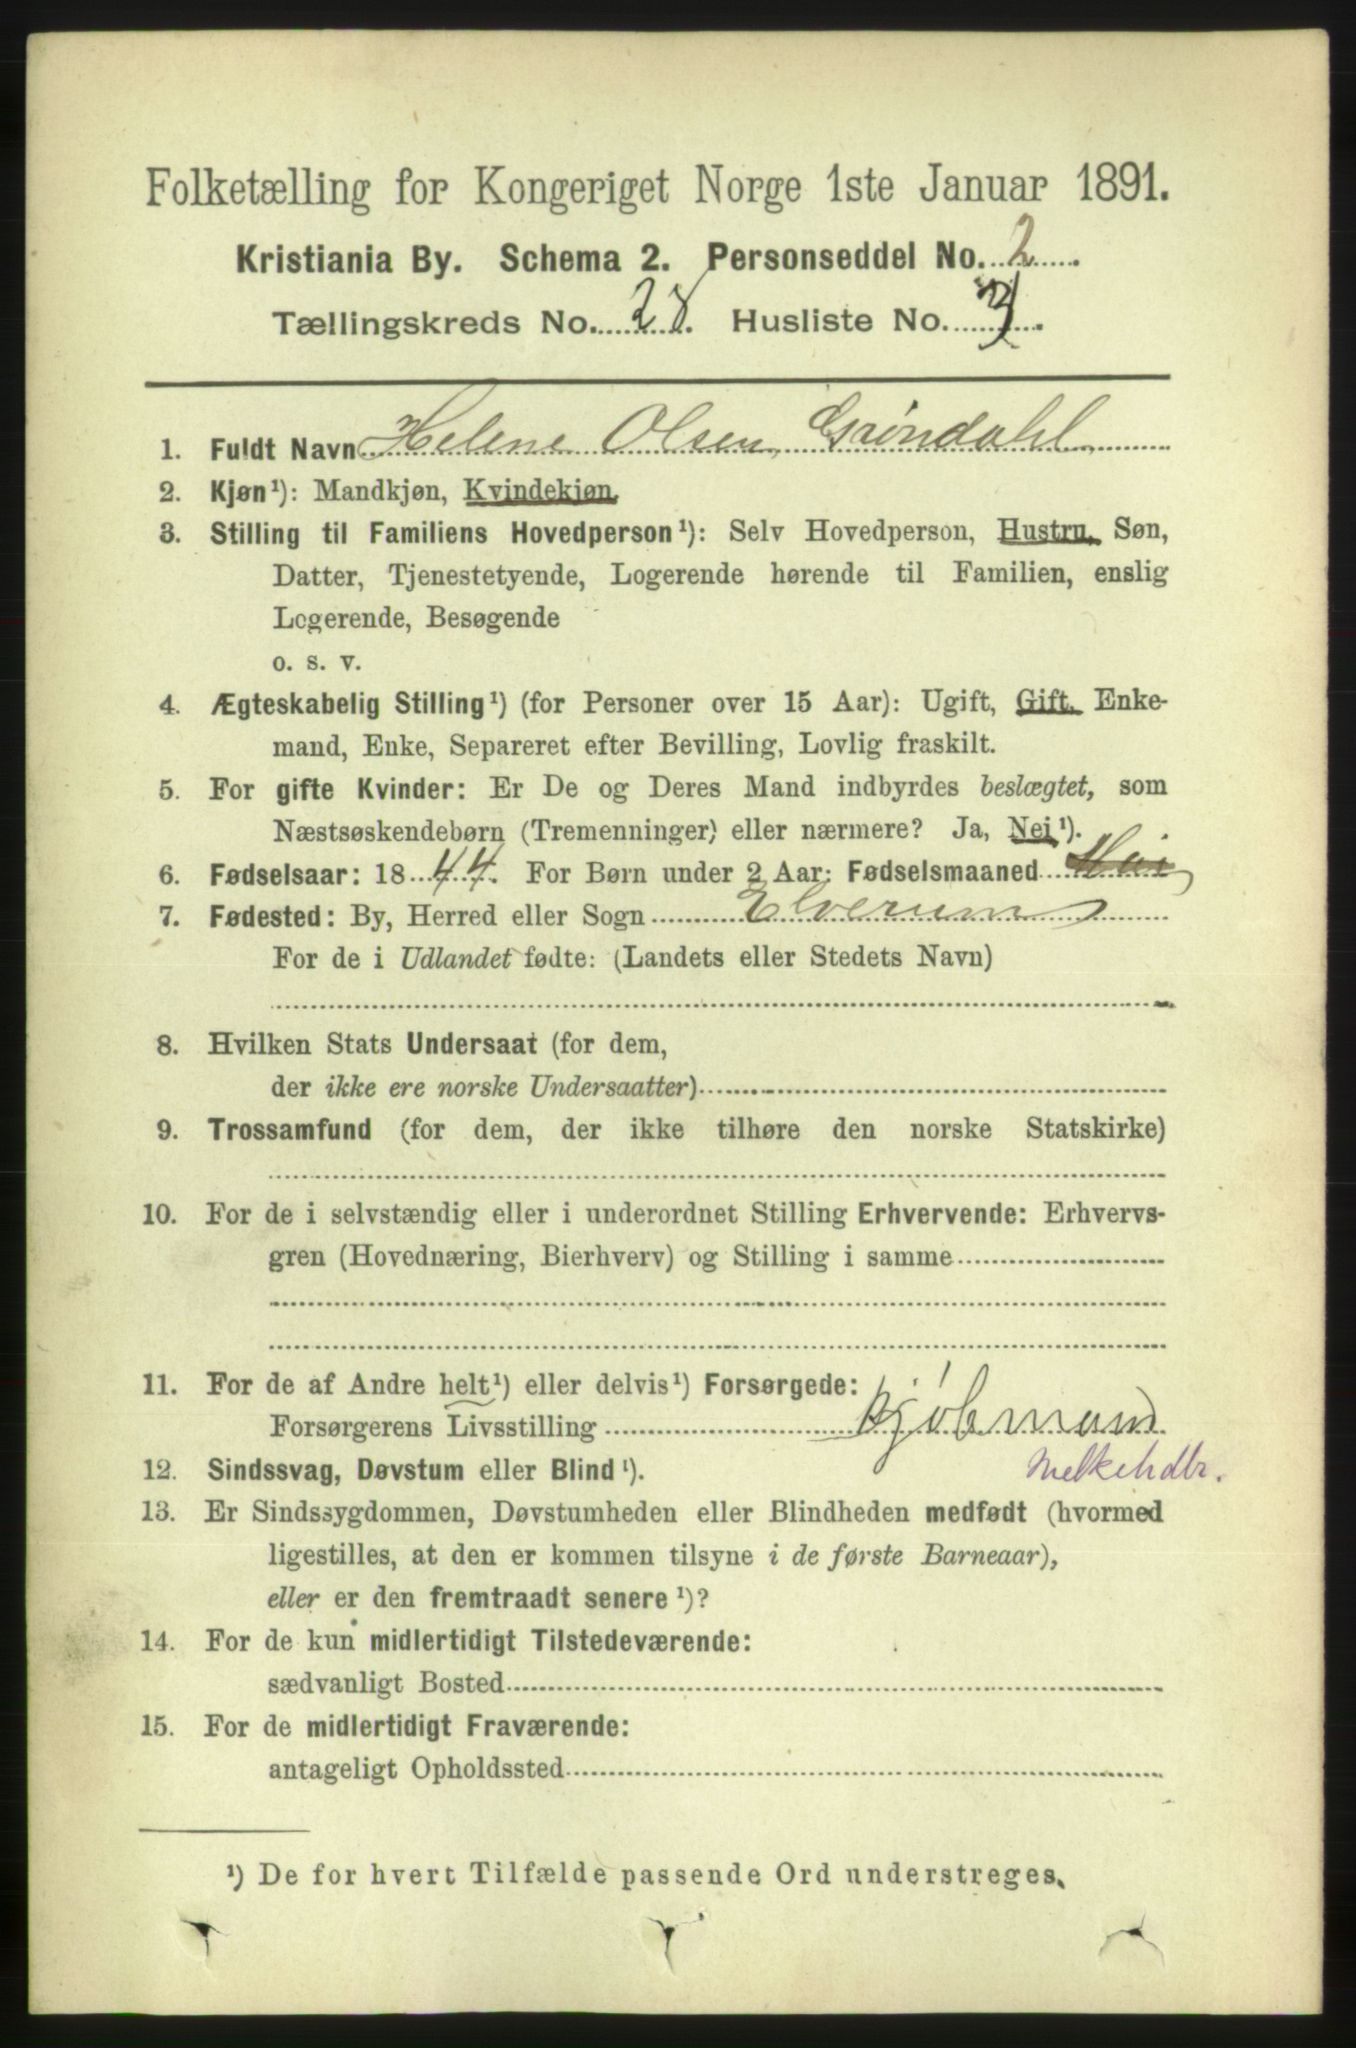 Folketælling for Kongeriget Norge 1ste Januar 1891.
Kristiania By. Schema 2. Personseddel No. 2
Tællingskreds No. 28. Husliste No. 3.
1. Fuldt Navn Helene Olsen Grøndahl
2. Kjøn¹): Mandkjøn, Kvindekjøn.
3. Stilling til Familiens Hovedperson¹): Selv Hovedperson, Hustru, Søn,
Datter, Tjenestetyende, Logerende hørende til Familien, enslig
Logerende, Besøgende
o. s. v.
4. Ægteskabelig Stilling¹) (for Personer over 15 Aar): Ugift, Gift, Enke-
mand, Enke, Separeret efter Bevilling, Lovlig fraskilt.
5. For gifte Kvinder: Er De og Deres Mand indbyrdes beslægtet, som
Næstsøskendebørn (Tremenninger) eller nærmere? Ja, Nei¹).
6. Fødselsaar: 1844. For Børn under 2 Aar: Fødselsmaaned Mai
7. Fødested: By, Herred eller Sogn Elverum
For de i Udlandet fødte: (Landets eller Stedets Navn)
8. Hvilken Stats Undersaat (for dem,
der ikke ere norske Undersaatter)
9. Trossamfund (for dem, der ikke tilhøre den norske Statskirke)
10. For de i selvstændig eller i underordnet Stilling Erhvervende: Erhvervs-
gren (Hovednæring, Bierhverv) og Stilling i samme
11. For de af Andre helt¹) eller delvis¹) Forsørgede:
Forsørgerens Livsstilling Kjøbmand
Melkehdlr.
12. Sindssvag, Døvstum eller Blind¹).
13. Er Sindssygdommen, Døvstumheden eller Blindheden medfødt (hvormed
ligestilles, at den er kommen tilsyne i de første Barneaar),
eller er den fremtraadt senere¹)?
14. For de kun midlertidigt Tilstedeværende:
sædvanligt Bosted
15. For de midlertidigt Fraværende:
antageligt Opholdssted
¹) De for hvert Tilfælde passende Ord understreges.